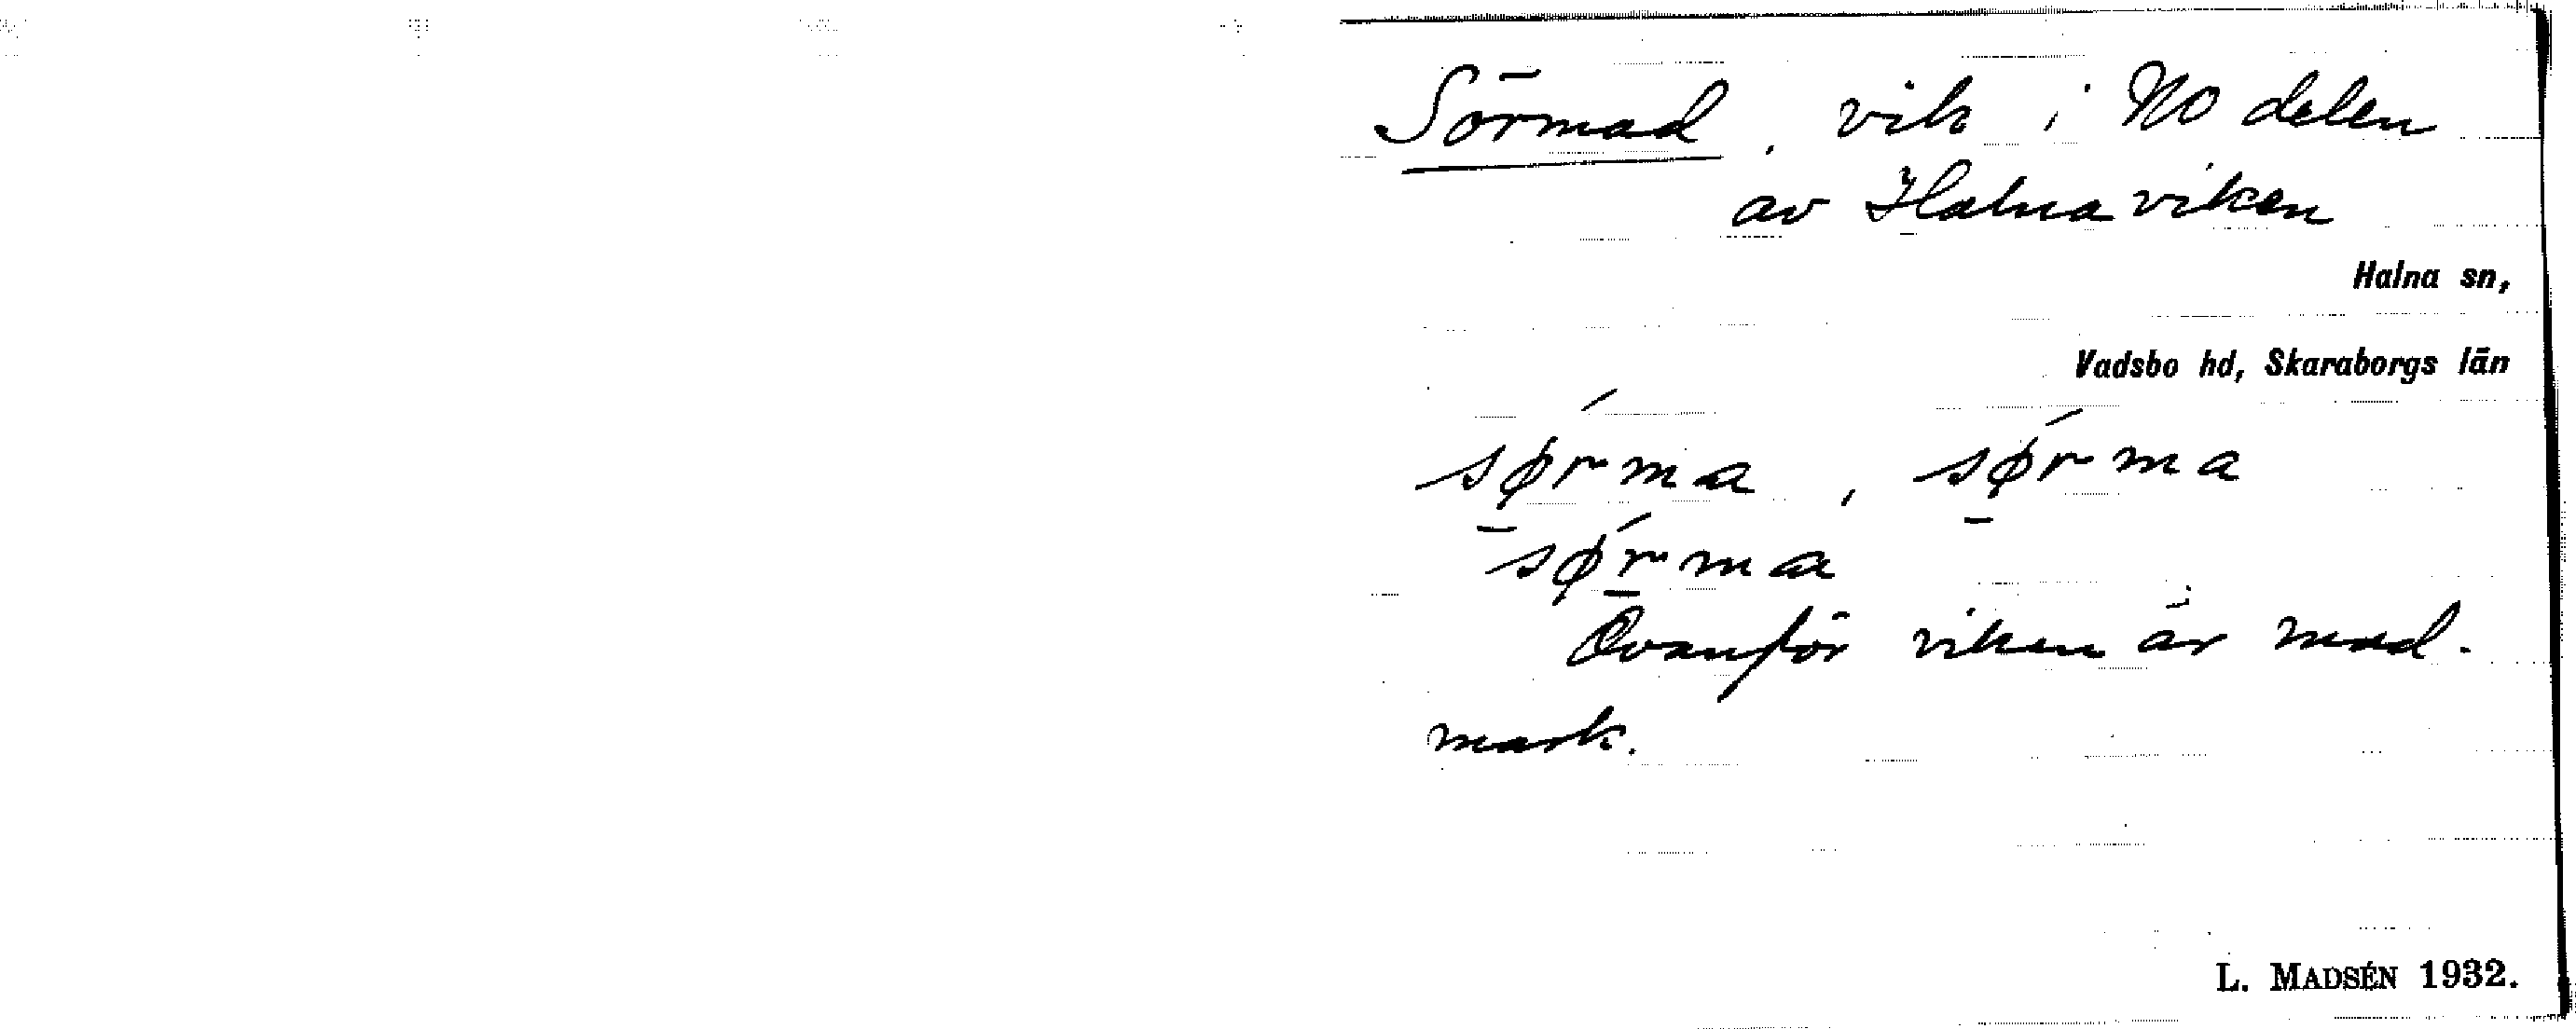 Sörmad, vik i NO delen
av Halnaviken
Halna sn,
Vadsbo hd, Skaraborgs län
sørma, sørma
sørma
Ovanför viken är mad-
mark.
L. MADSÉN 1932.